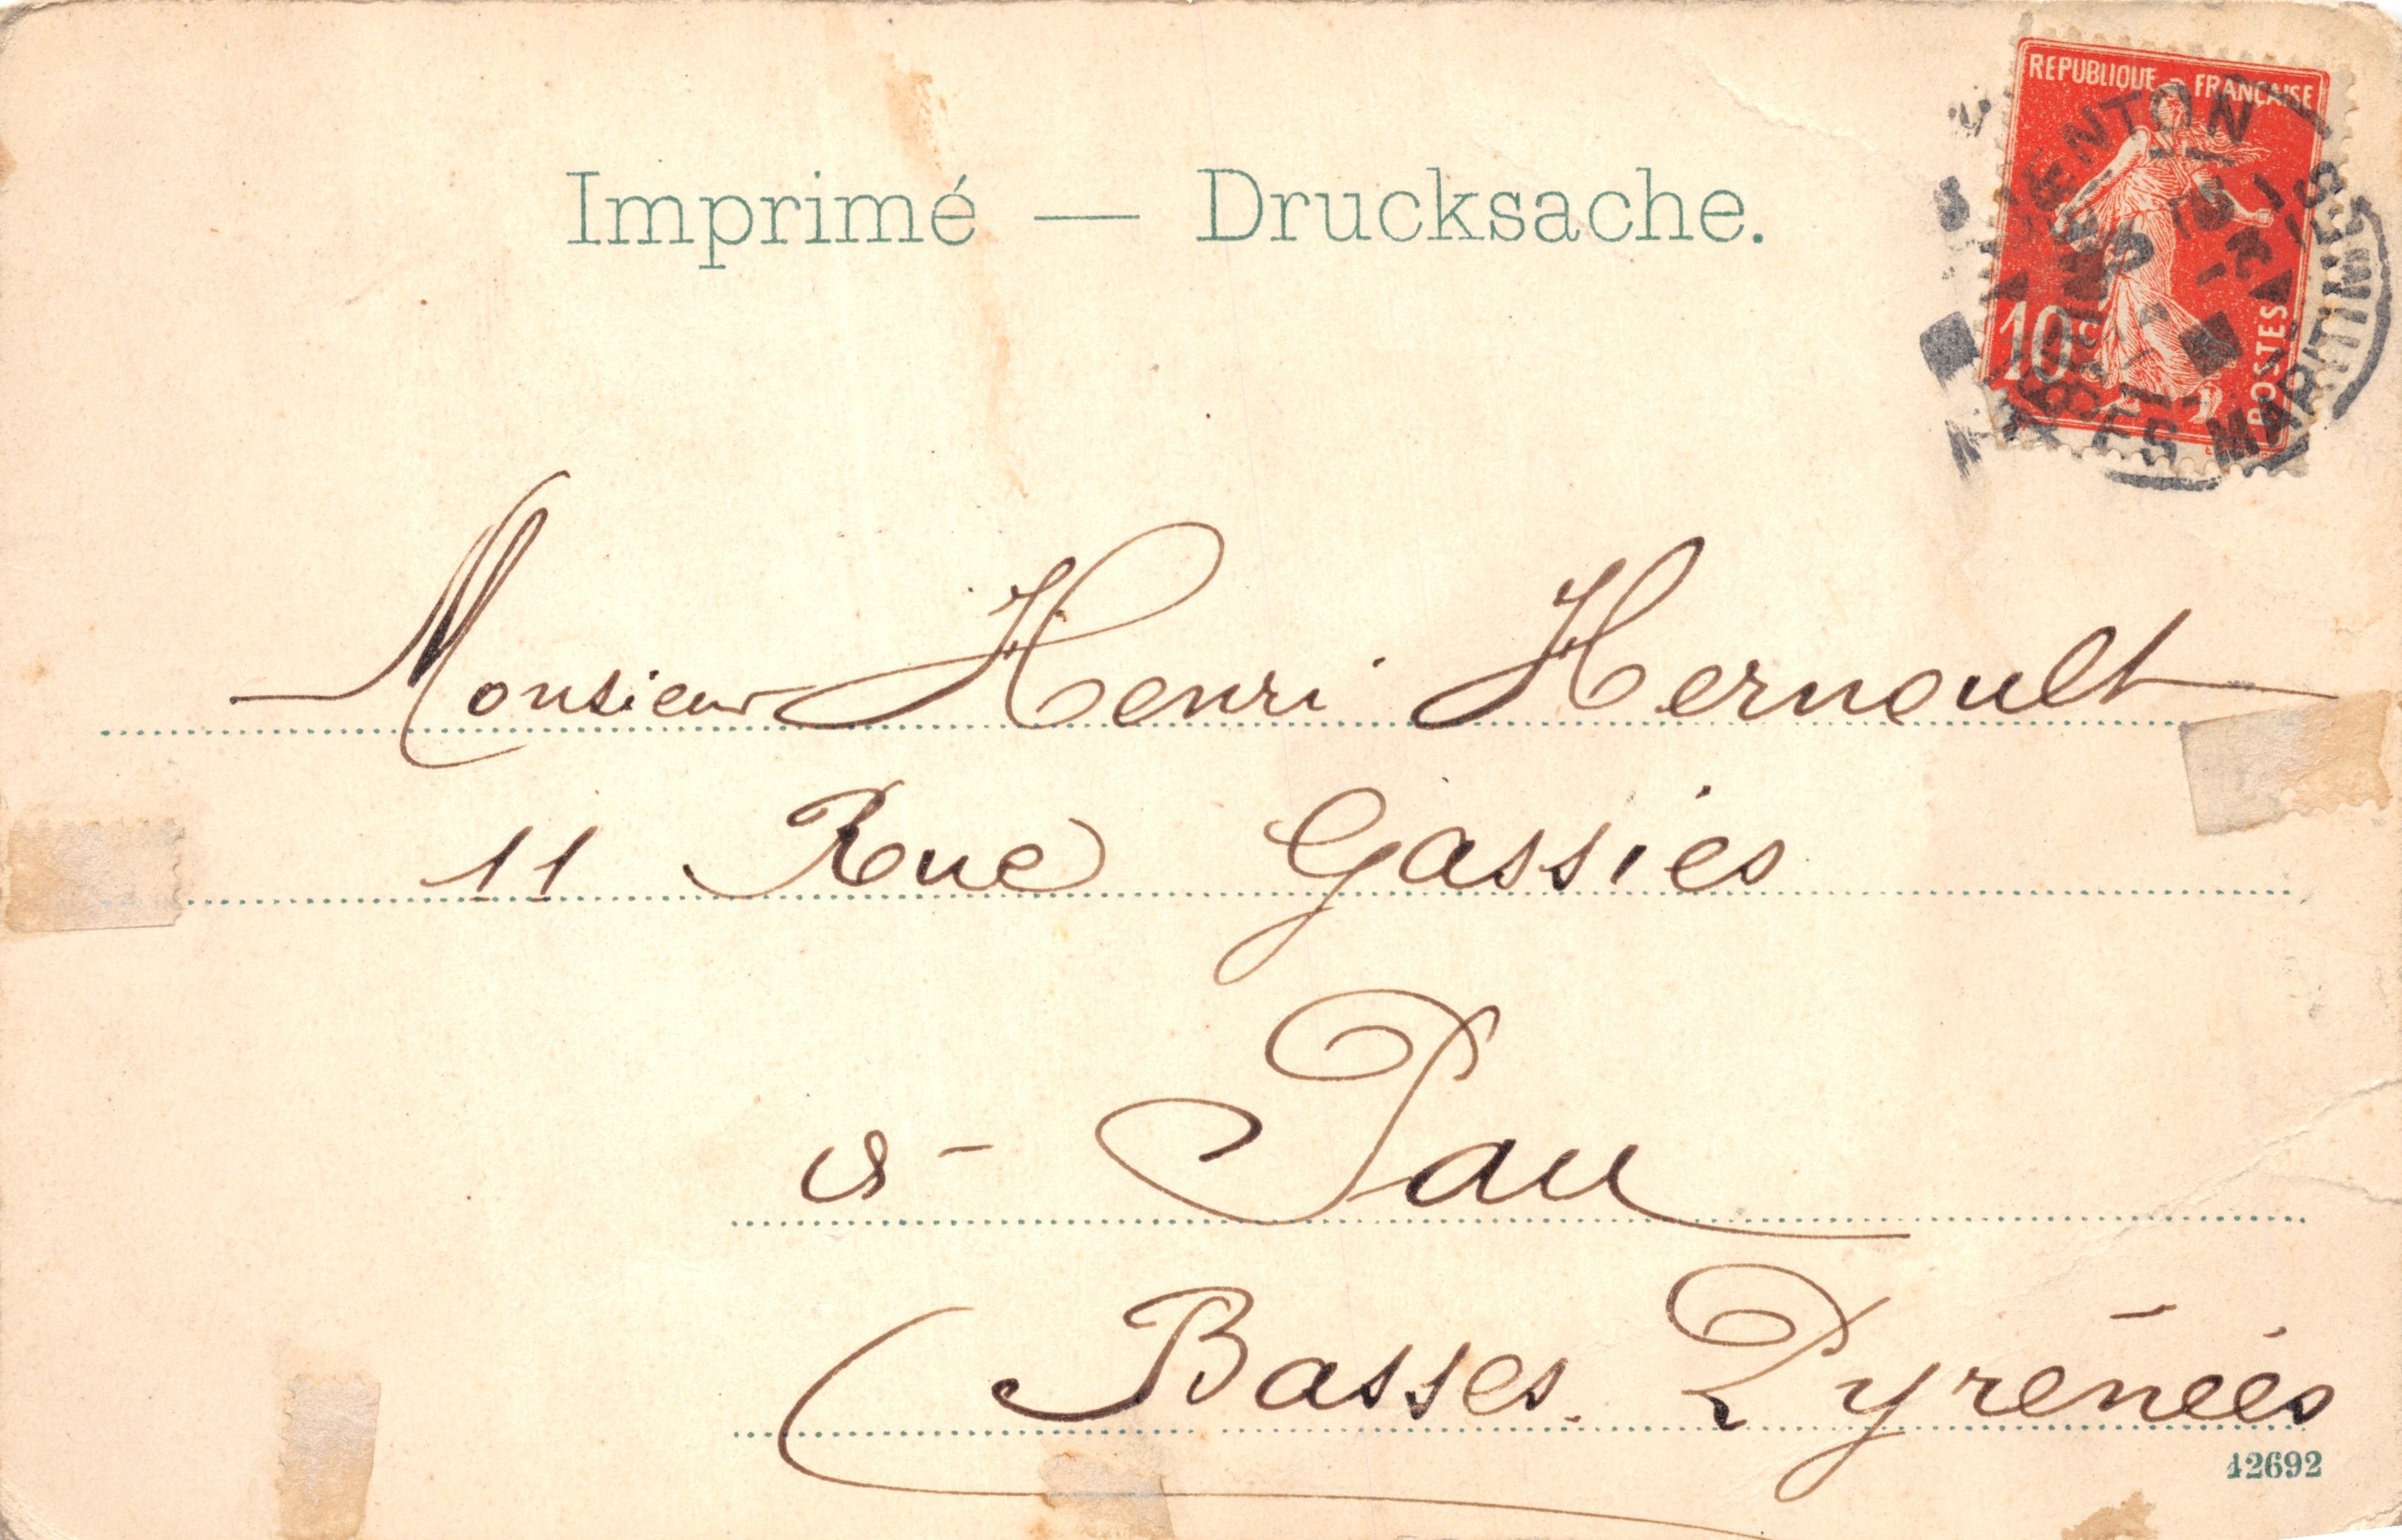 Imprimé — Drucksache.
REPUBLIQUE - FRANÇAISE
10c
POSTES
MENTON
ALPES MARITIMES
Monsieur Henri Hernoult
11 Rue Gassies
à - Pau
Basses-Pyrénées
42692